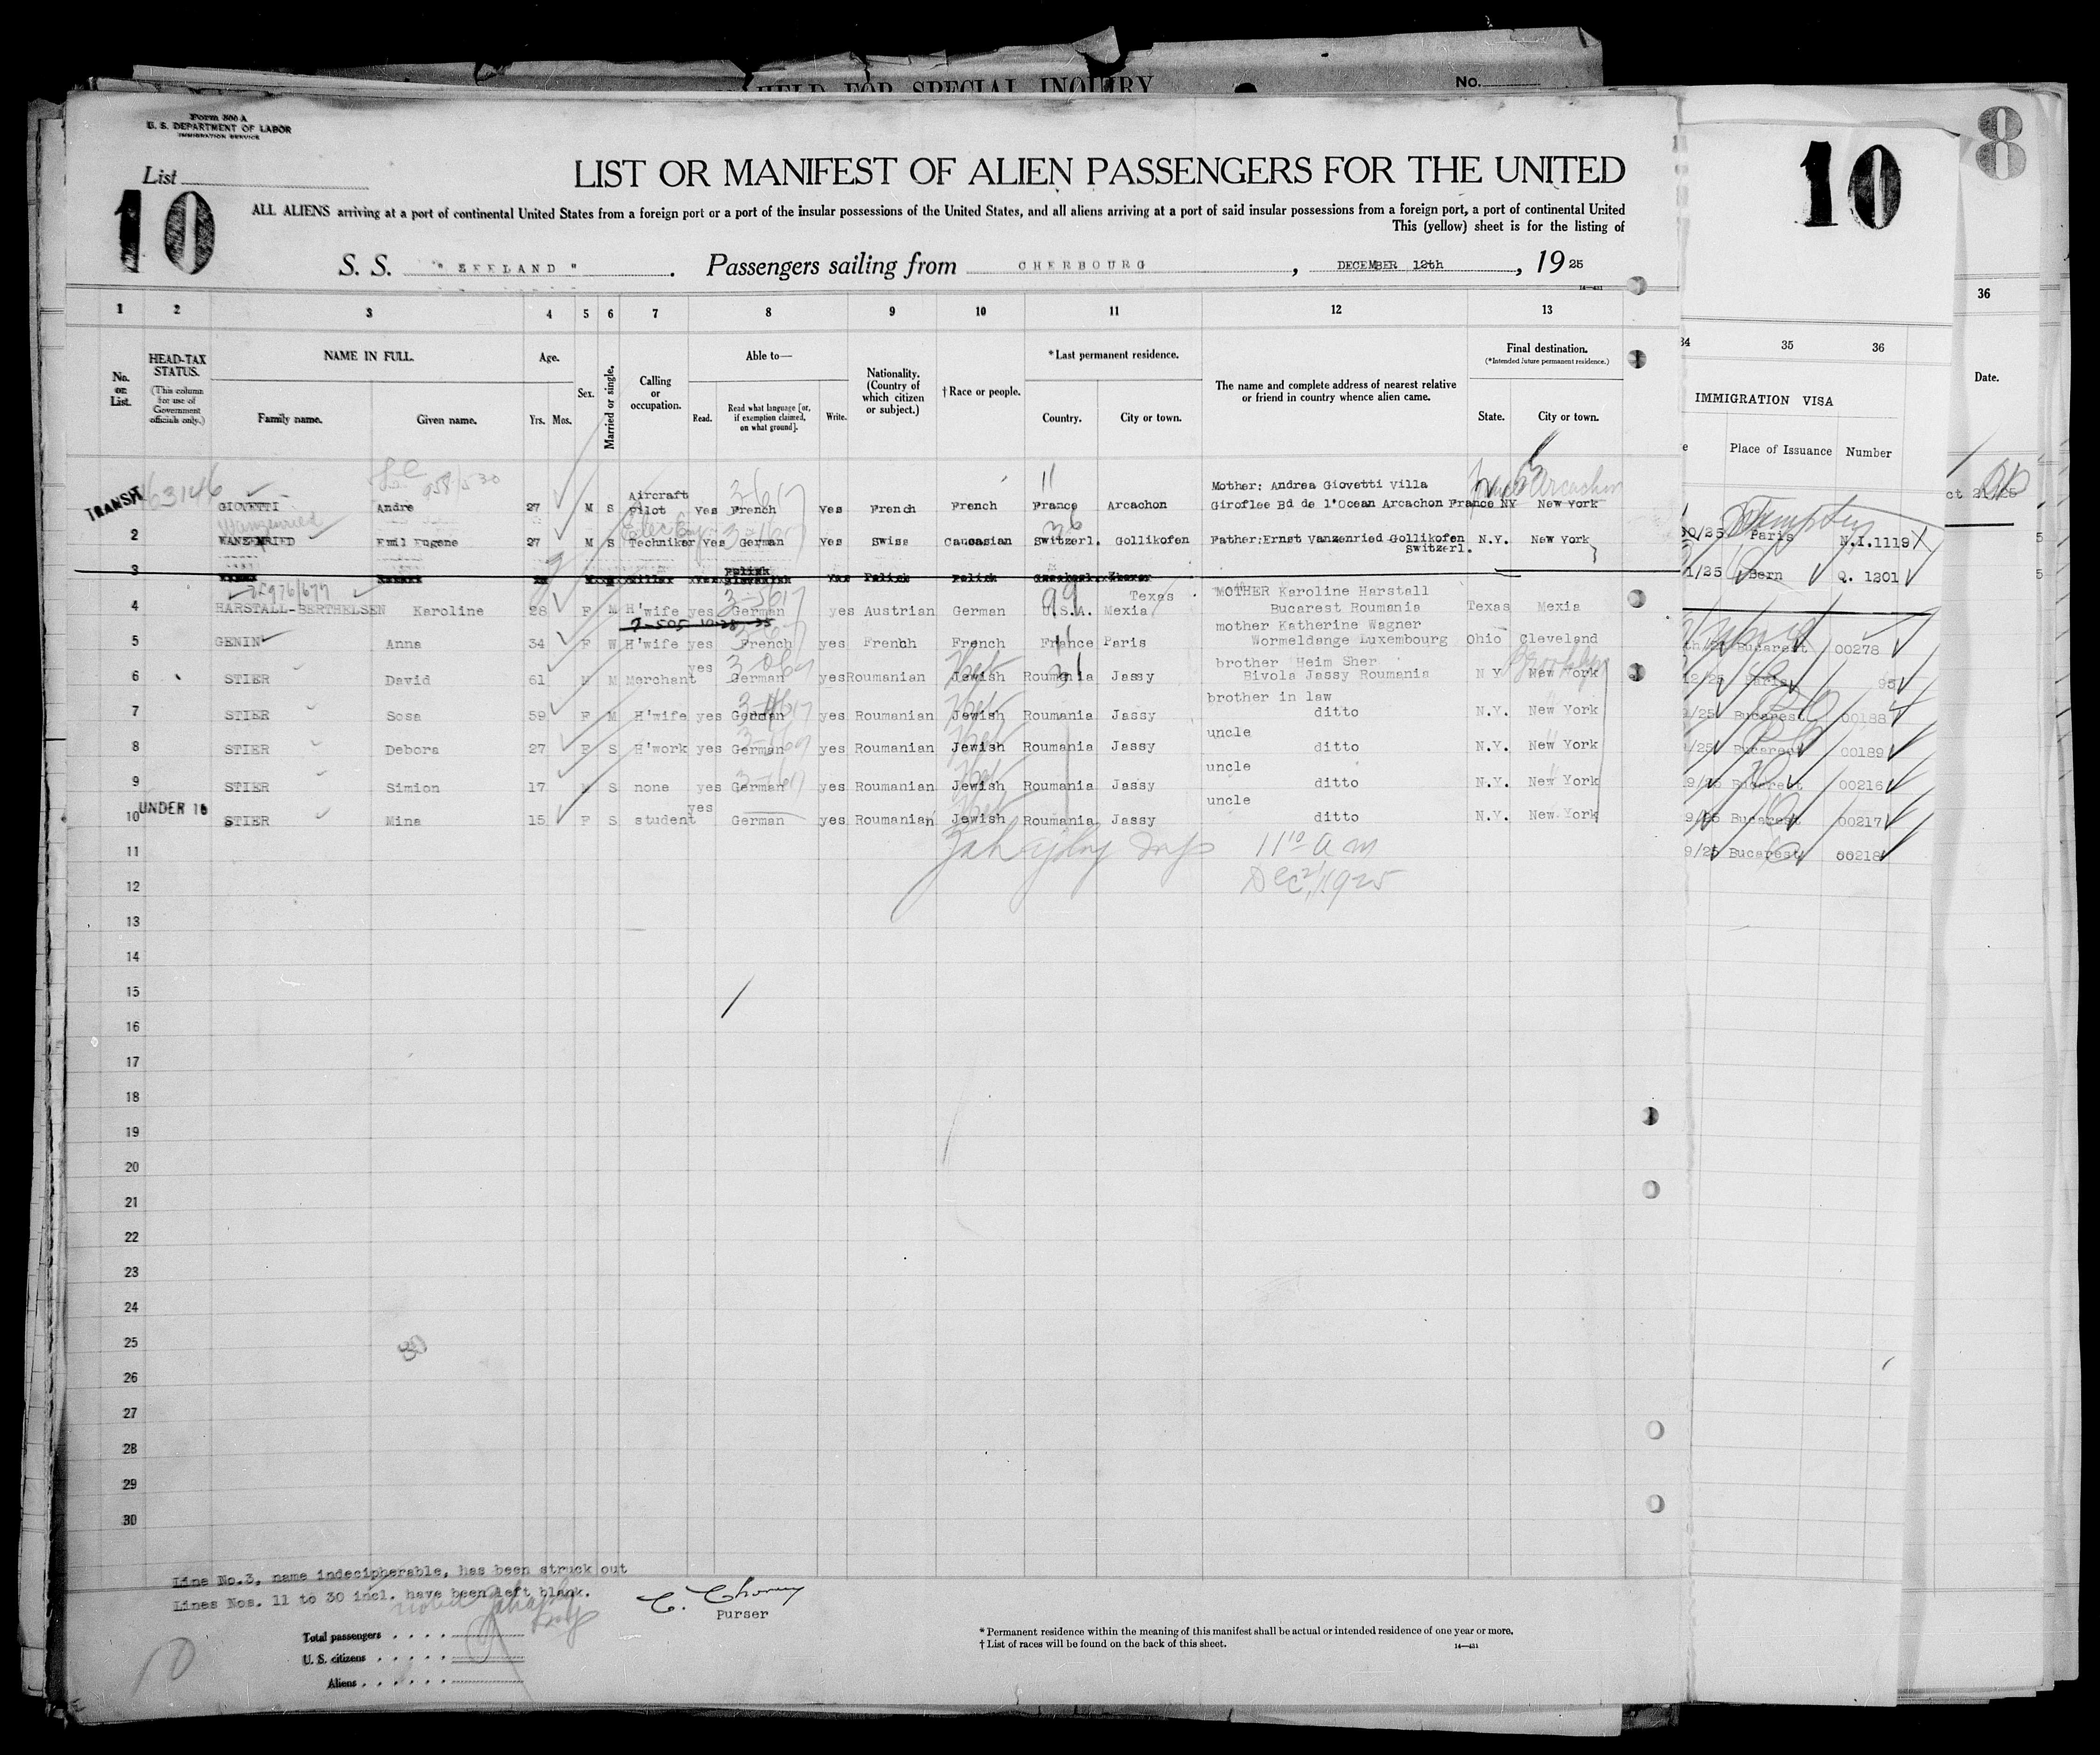 HELD FOR SPECIAL INQUIRY
No.
8
Form 500 A
U. S. DEPARTMENT OF LABOR
IMMIGRATION SERVICE
List
10
LIST OR MANIFEST OF ALIEN PASSENGERS FOR THE UNITED
10
ALL ALIENS arriving at a port of continental United States from a foreign port or a port of the insular possessions of the United States, and all aliens arriving at a port of said insular possessions from a foreign port, a port of continental United
This (yellow) sheet is for the listing of
S. S. "ZEELAND". Passengers sailing from CHERBOURG, DECEMBER 12th, 19 25
14—431
1 2 3 4 5 6 7 8 9 10 11 12 13
34 35 36
36
No. on List.
HEAD-TAX STATUS.
(This column for use of Government officials only.)
NAME IN FULL.
Family name. Given name.
Age.
Yrs. Mos.
Sex.
Married or single.
Calling or occupation.
Able to—
Read. Read what language [or, if exemption claimed, on what ground]. Write.
Nationality. (Country of which citizen or subject.)
† Race or people.
* Last permanent residence.
Country. City or town.
The name and complete address of nearest relative or friend in country whence alien came.
Final destination.
(*Intended future permanent residence.)
State. City or town.
IMMIGRATION VISA
Place of Issuance Number
Date.
TRANSIT 163146 958/530 11 Arcachon
GIOVETTI Andre 27 M S Aircraft Pilot Yes French Yes French French France Arcachon Mother: Andrea Giovetti Villa Giroflee Bd de l'Ocean Arcachon France NY New York
Wanzenried 36
2 WANZENRIED Emil Eugene 27 M S Techniker Yes German Yes Swiss Caucasian Switzerl. Gollikofen Father:Ernst Vanzenried Gollikofen Switzerl. N.Y. New York
3 Polish
976/677 99
4 HARSTALL-BERTHELSEN Karoline 28 F M H'wife yes German yes Austrian German U.S.A. Texas Mexia MOTHER Karoline Harstall Bucarest Roumania Texas Mexia
5 GENIN Anna 34 F W H'wife yes French yes French French France Paris mother Katherine Wagner Wormeldange Luxembourg Ohio Cleveland
Brooklyn
6 STIER David 61 M M Merchant yes German yes Roumanian Jewish Roumania Jassy brother Heim Sher Bivola Jassy Roumania N Y New York
7 STIER Sosa 59 F M H'wife yes German yes Roumanian Jewish Roumania Jassy brother in law ditto N.Y. New York
8 STIER Debora 27 F S H'work yes German yes Roumanian Jewish Roumania Jassy uncle ditto N.Y. New York
9 STIER Simion 17 M S none yes German yes Roumanian Jewish Roumania Jassy uncle ditto N.Y. New York
UNDER 16
10 STIER Mina 15 F S student yes German yes Roumanian Jewish Roumania Jassy uncle ditto N.Y. New York
Paris N.I.1119
Bern Q. 1201
Bucarest 00278
Paris 95
Bucarest 00188
Bucarest 00189
Bucarest 00216
Bucarest 00217
Bucarest 00218
11
11 10 a m
12
Dec 21, 1925
13
14
15
16
17
18
19
20
21
22
23
24
25
26
27
28
29
30
Line No.3, name indecipherable, has been struck out
Lines Nos. 11 to 30 incl. have been left blank.
Purser
Total passengers
U. S. citizens
Aliens
* Permanent residence within the meaning of this manifest shall be actual or intended residence of one year or more.
† List of races will be found on the back of this sheet.
14—431
10